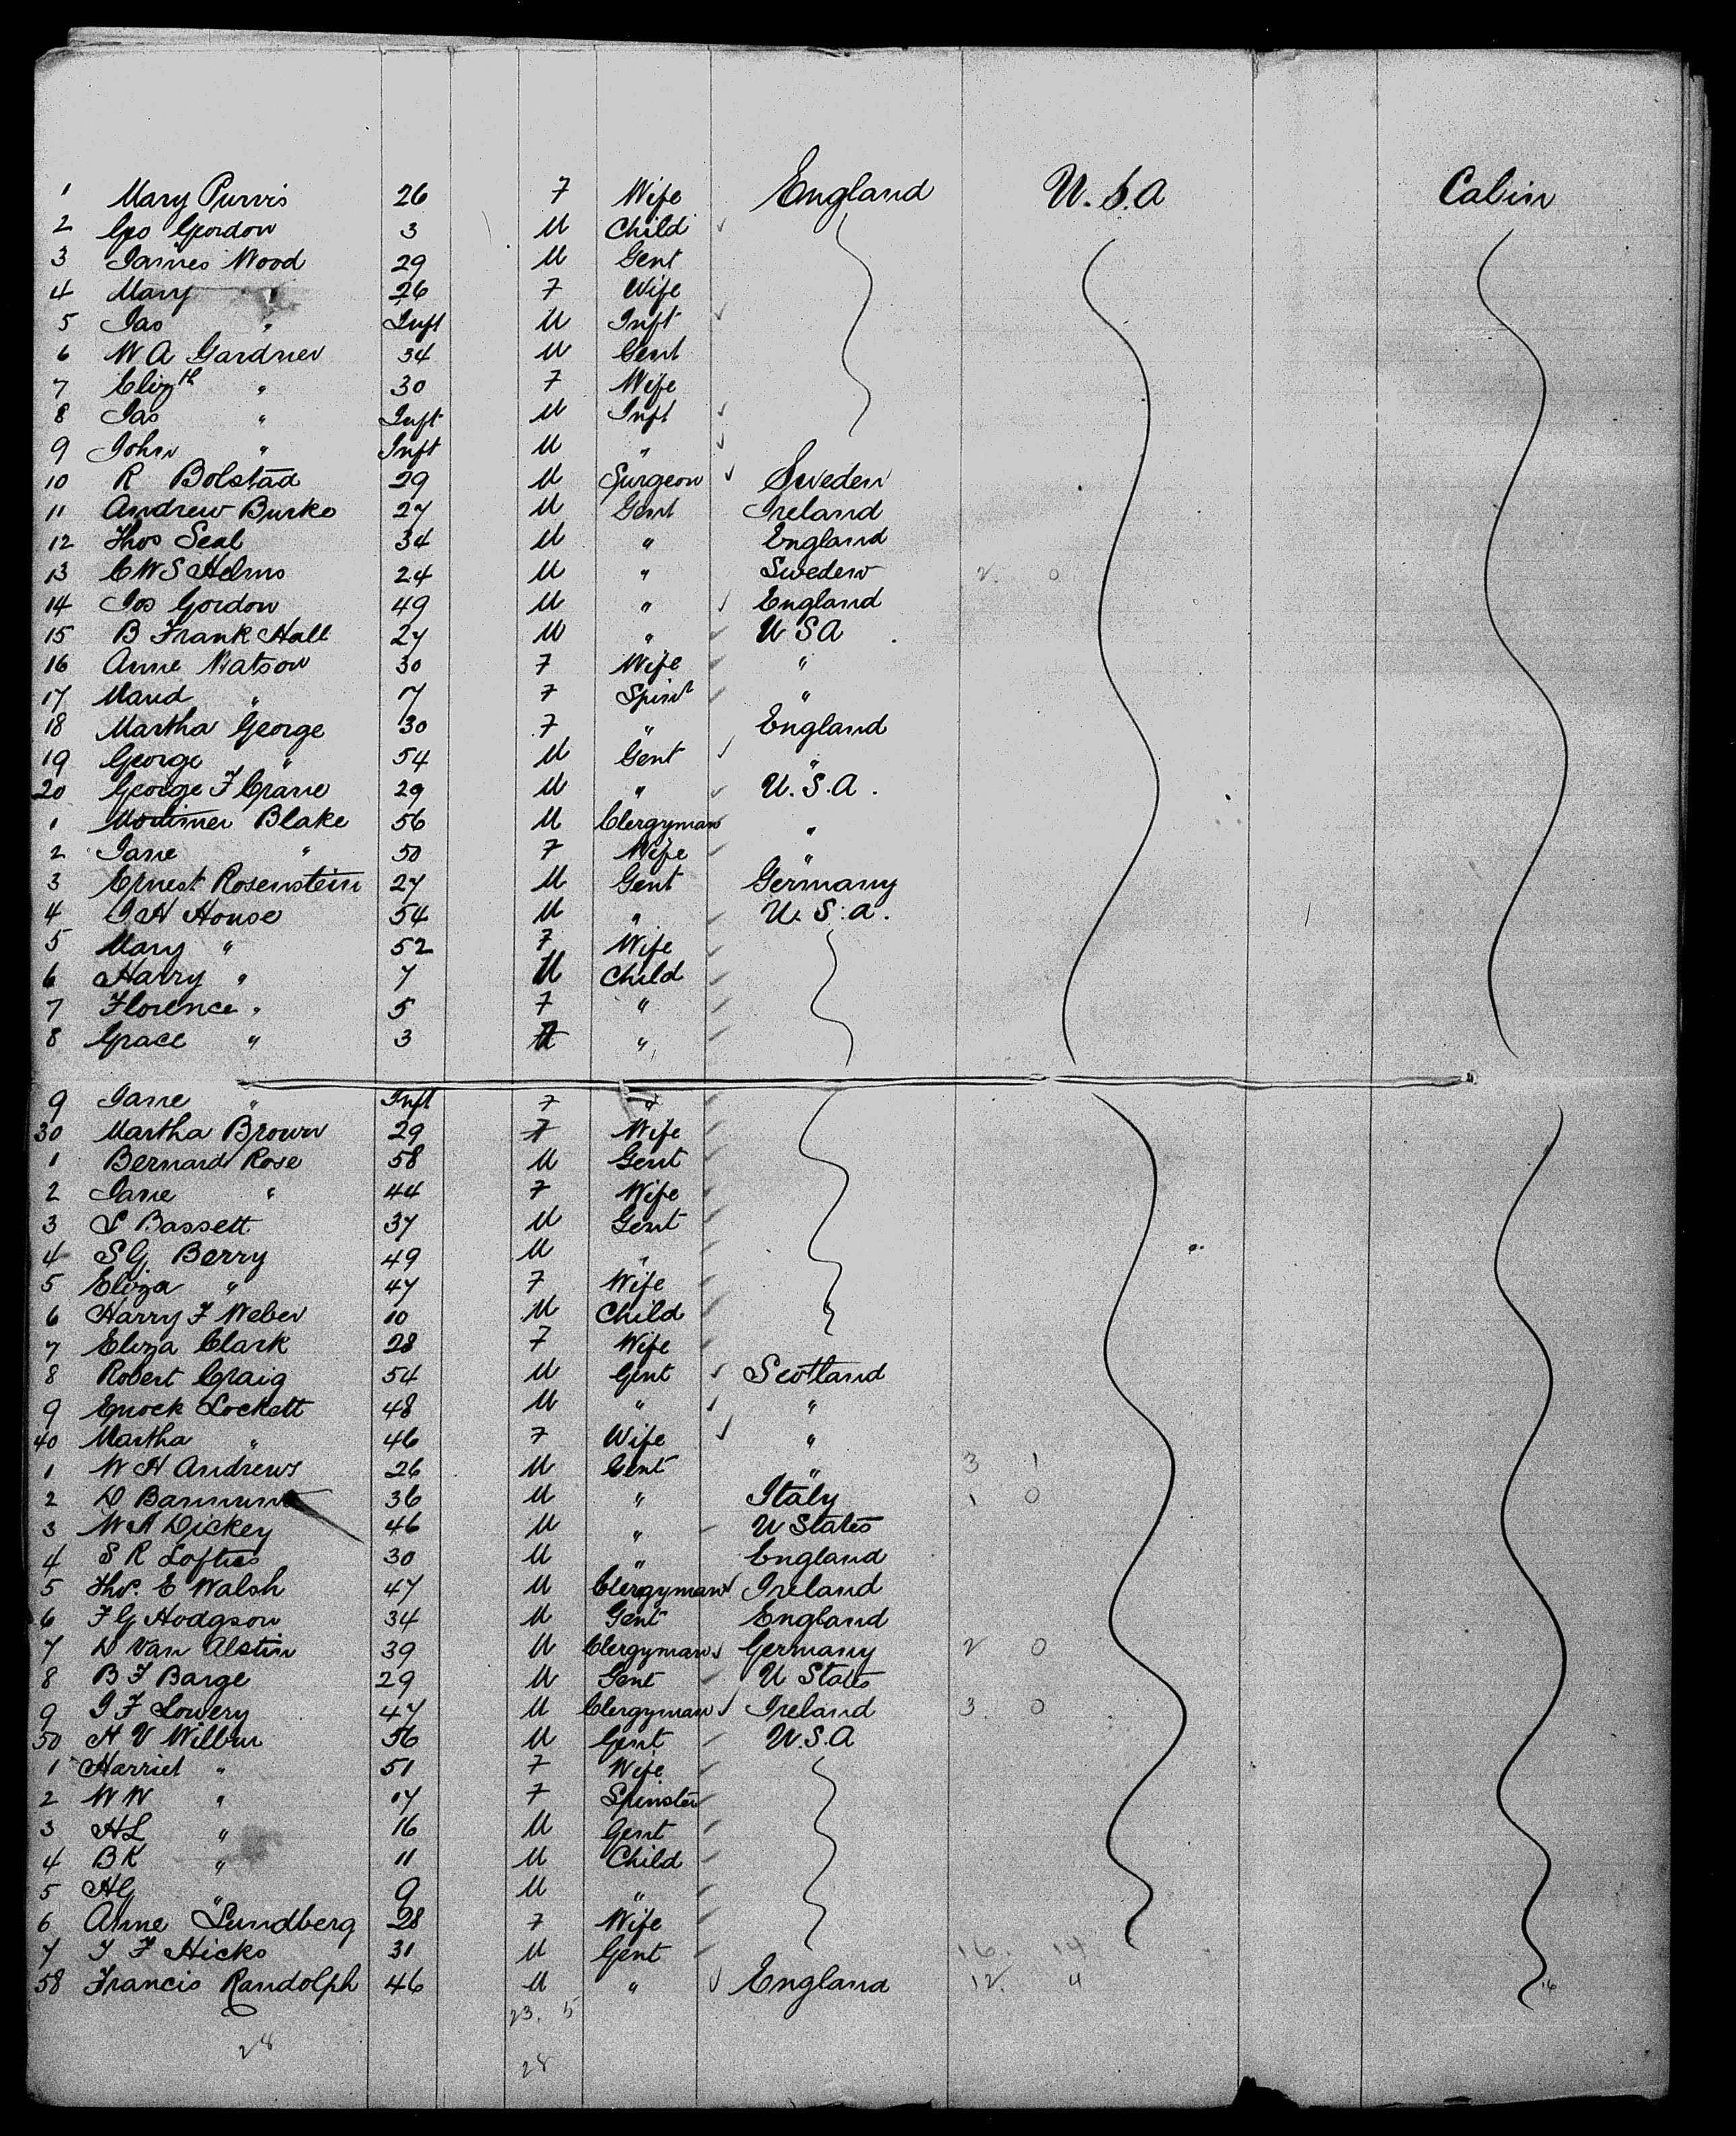 1 Mary Purvis 26 F Wife England U.S.A Cabin
2 Geo Gordon 3 M Child
3 James Wood 29 M Gent
4 Mary " 26 F Wife
5 Jas " Inft M Inft
6 W A Gardner 34 M Gent
7 Elizth " 30 F Wife
8 Jas " Inft M Inft
9 John " Inft M "
10 R Bolstad 29 M Surgeon Sweden
11 Andrew Burke 27 M Gent Ireland
12 Thos Seal 34 M " England
13 C W S Helms 24 M " Sweden 2 0
14 Jos Gordon 49 M " England
15 B Frank Hall 27 M " U S A
16 Anne Watson 30 F Wife "
17 Maud " 17 F Spinr "
18 Martha George 30 F " England
19 George " 54 M Gent "
20 George F Crane 29 M " U.S.A.
1 Mortimer Blake 56 M Clergyman "
2 Jane " 50 F Wife "
3 Ernest Rosenstein 27 M Gent Germany
4 J H House 54 M " U.S.A.
5 Mary " 52 F Wife
6 Harry " 7 M Child
7 Florence " 5 F "
8 Grace " 3 "
9 Jane " Inft F "
30 Martha Brown 29 F Wife
1 Bernard Rose 58 M Gent
2 Jane " 44 F Wife
3 S Bassett 37 M Gent
4 S G Berry 49 M "
5 Eliza " 47 F Wife
6 Harry F Weber 10 M Child
7 Eliza Clark 28 F Wife
8 Robert Craig 54 M Gent Scotland
9 Enock Lockett 48 M " "
40 Martha " 46 F Wife "
1 W H Andrews 26 M Gent " 3 1
2 D 36 M " Italy 1 0
3 W A Dickey 46 M " U States
4 S R Lofties 30 M " England
5 Thos. E Walsh 47 M Clergyman Ireland
6 F G Hodgson 34 M Gent England
7 D Van Alstin 39 M Clergyman Germany 2 0
8 B F Barge 29 M Gent U States
9 J F Lowery 47 M Clergyman Ireland 3 0
50 H V Wilbur 56 M Gent U.S.A
1 Harriet " 51 F Wife
2 W W " 17 F Spinster
3 H L " 16 M Gent
4 B K " 11 M Child
5 H G " 9 M "
6 Anne Lundberg 28 F Wife
7 J F Hicks 31 M Gent 16. 14
58 Francis Randolph 46 M " England 12. 4 16
23. 5
28
28